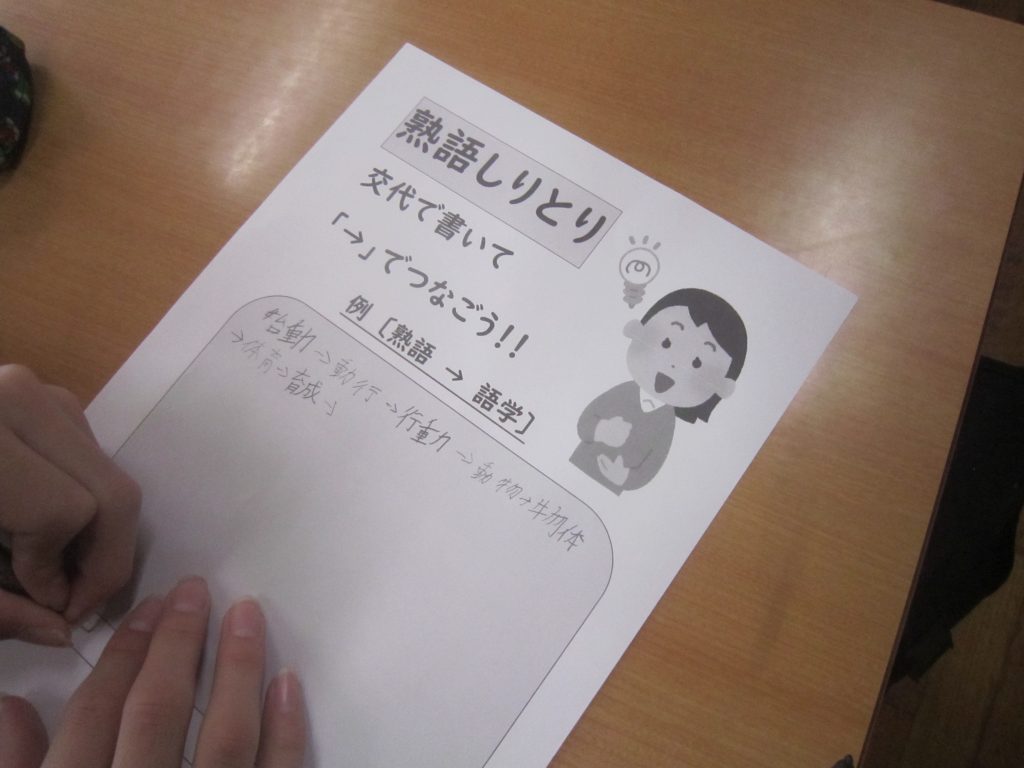 熟語しりとり
交代で書いて
「→」でつなごう!!
例 [熟語 → 語学]
始動→動行→行動→動物→物体
→体育→育成→